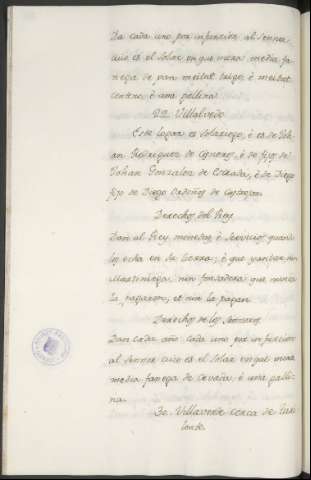 Da cada uno por infurcion al Sennor
cuio es el solar en que mora media fa
nega de pan meitat trigo, è meitat
centeno, è una gallina.
Villalvedo
Este logar es solariego, è es de Joh
an Rodriguez de Cisneros, è de fijos de
Johan Gonzalez de Estrada, è de Diego
fijo de Diego Ordoñes de
Derechos del Rey
Dan al Rey monedas, è Servicios quando
los echa en su tierra, è que yantar nin
Martiniega, nin fonsadera que nunca
la pagaron, et non la pagan
Derechos de los Sennores
Dan cada año cada uno por infurcion
al Sennor cuio es el solar en que mora
media fanega de cevada, è una galli
na.
De Villaverde cerca de